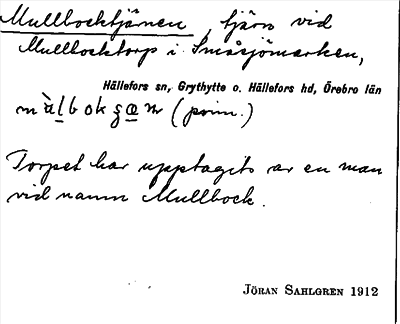 Mullbocktjänen, tjärn vid
Mullbocktorp i Småsjömarken,
Hällefors sn, Grythytte o. Hällefors hd, Örebro län
(prim.)
Torpet har upptagits av en man
vid namn Mullbock.
JÖRAN SAHLGREN 1912